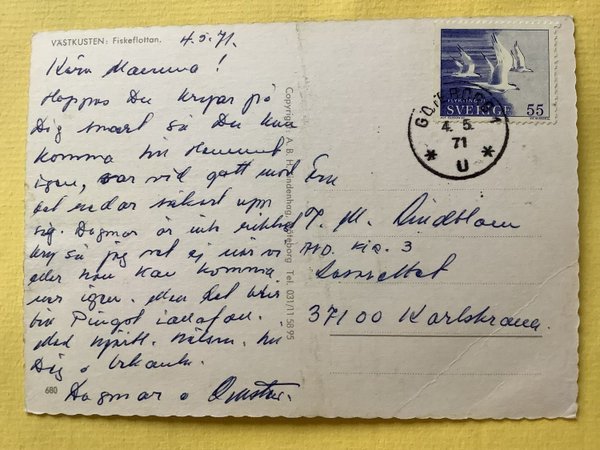 VÄSTKUSTEN: Fiskeflottan.
4.5.71.
Kära Mamma!
Hoppas Du kryar på
Dig snart så Du kan
komma till Hemmet
igen, var vid gott mod
det ordnar säkert upp
sig. Dagmar är inte riktigt
kry så jag vet ej när vi
eller hon kan komma
ner igen. Men det blir
till Pingst i alla fall.
Med hjärtl. hälsn. till
Dig o
Dagmar o
680
Copyright: A. B. H. Lindenhag, Göteborg Tel. 031/11 58 95
FLYKTING 71
SVERIGE 55
GÖTEBORG 1
4. 5.
71
U
Fru
M. Lindblom
Avd. Kir. 3
Lasarettet
37100 Karlskrona.